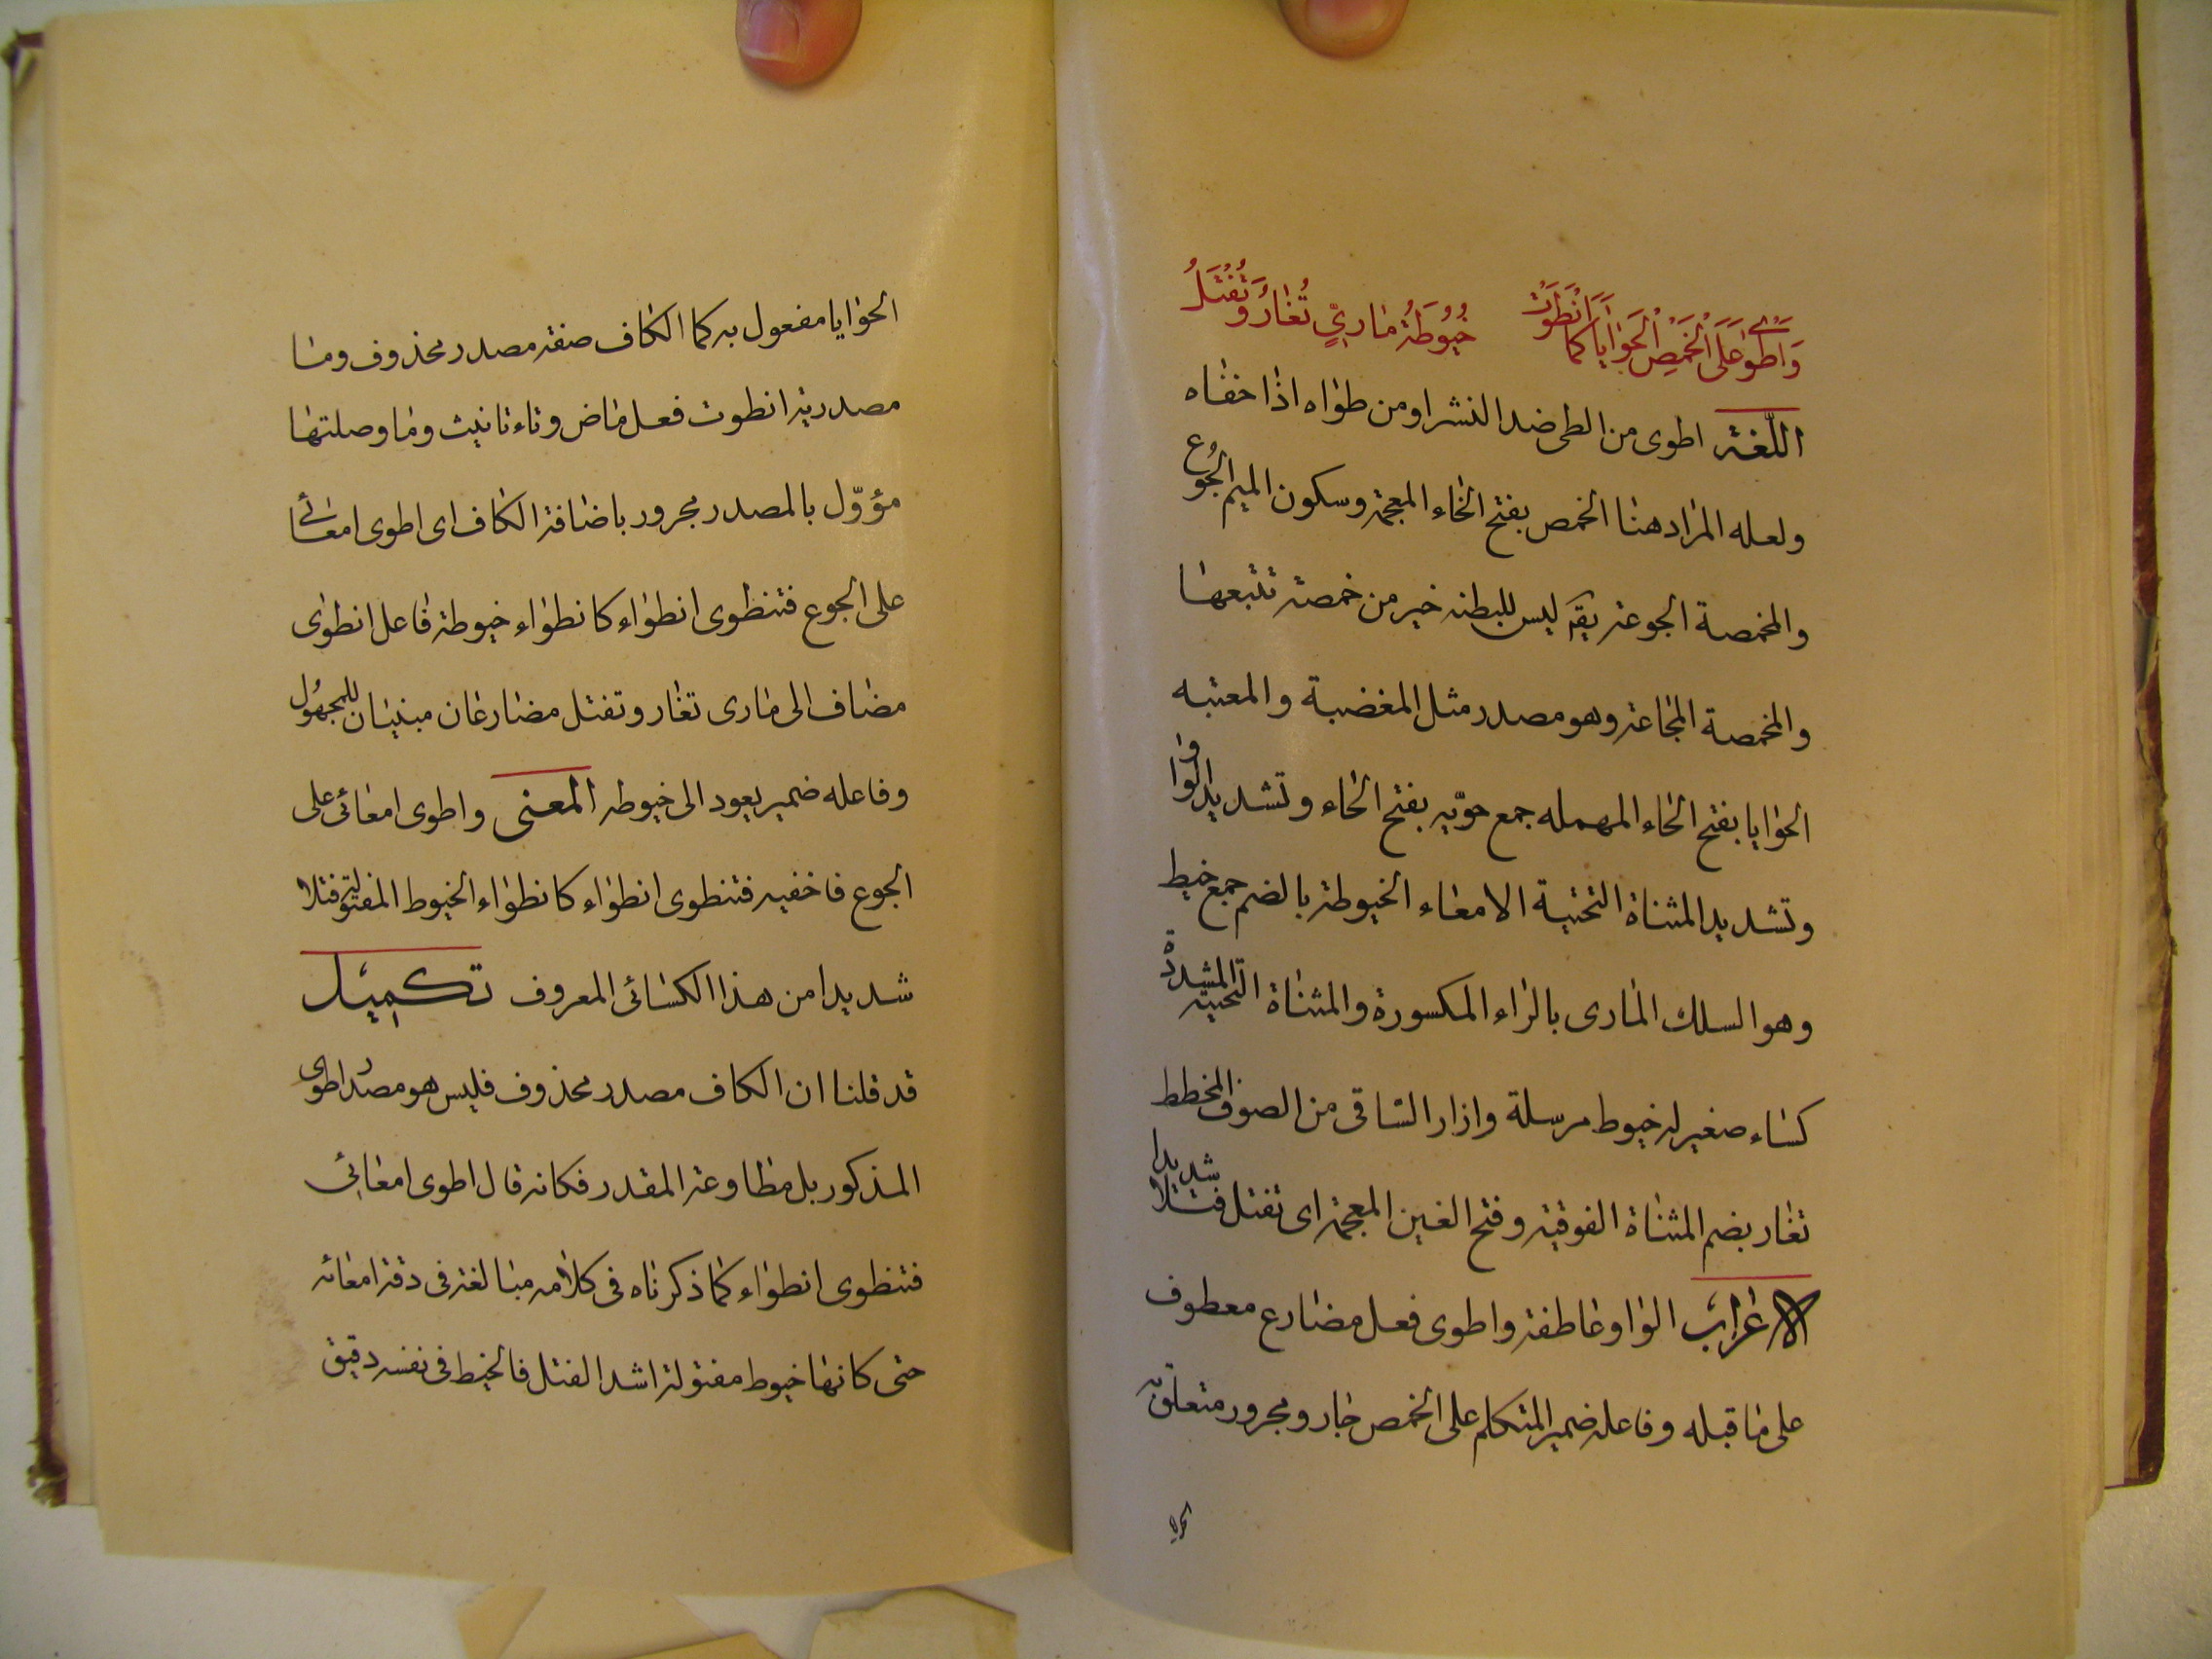 وَاَطْوِي عَلَى الْخَمْصِ الْحَوَايَا كَمَا انْطَوَتْ خُيُوطَةُ مَارِيٍّ تُغَارُ وَتُفْتَلُ
اللّغة اطوى من الطى ضد النشر او من طواه اذا خفاه
ولعله المراد هنا الخمص بفتح الخاء المعجمة وسكون الميم الجُوع
والخمصة الجوعة يقر ليس للبطنه خير من خمصة تتبعها
والمخمصة المجاعة وهو مصدر مثل المغضبة والمعتبه
الحوايا بفتح الحاء المهمله جمع حوّيه بفتح الحاء وتشديد الواو
وتشديد المثناة التحتية الامعاء الخيوطة بالضم جمع خيط
وهو السلك المارى بالراء المكسورة والمثناة التحتية المشددة
كساء صغير له خيوط مرسلة وازار الساقى من الصوف المخطط
تغار بضم المثناة الفوقية وفتح الغين المعجمة اى تفتل فتلا شديدا
الاعراب الواو عاطفة واطوى فعل مضارع معطوف
على ما قبله وفاعله ضمير المتكلم على الخمص جار ومجرور متعلق به
الحوايا مفعول به كما الكاف صفة مصدر محذوف وما
مصدرية انطوت فعل ماض وتاء تانيث وما وصلتها
مؤوّل بالمصدر مجرور باضافة الكاف اى اطوى امعائى
على الجوع فتنطوى انطواء كانطواء خيوطة فاعل انطوى
مضاف الى مارى تغار وتفتل مضارعان مبنيان للمجهُول
وفاعله ضمير يعود الى خيوطه المعنى واطوى امعائى على
الجوع فاخفيه فتنطوى انطواء كانطواء الخيوط المفتولة فتلا
شديدا من هذا الكسائى المعروف تكميل
قد قلنا ان الكاف مصدر محذوف فليس هو مصدر اطوى
المذكور بل مطاوعة المقدر فكانه قال اطوى امعائى
فتنطوى انطواء كما ذكرناه فى كلامه مبالغة فى دقة امعائه
حتى كانها خيوط مفتولة اشد الفتل فالخيط فى نفسه دقيق